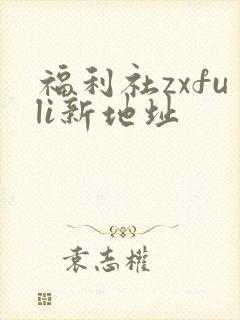 福利社zxfu
li新地址
袁志權